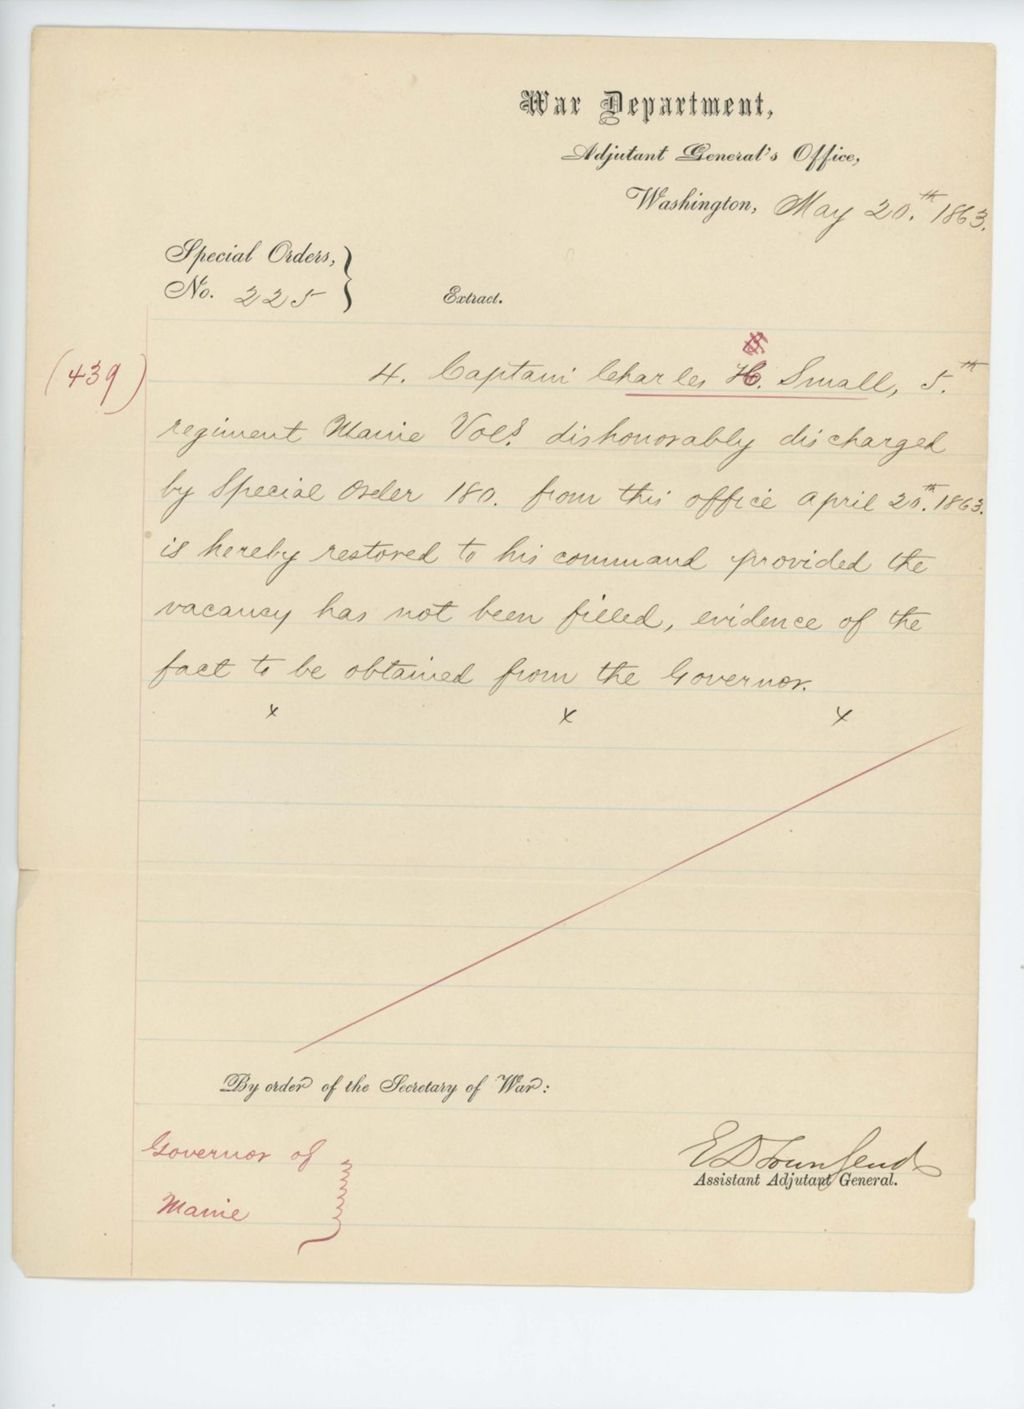 War Department,
Adjutant General's Office,
Washington, May 20.th 1863.
Special Orders,
No. 225
Extract.
(439)
4. Captain Charles H. Small, 5.th
regiment Maine Vols. dishonorably discharged
by Special Order 180. from this office April 20.th 1863.
is hereby restored to his command provided the
vacancy has not been filled, evidence of the
fact to be obtained from the Governor.
x x x
By order of the Secretary of War:
E D Townsend
Assistant Adjutant General.
Governor of
Maine